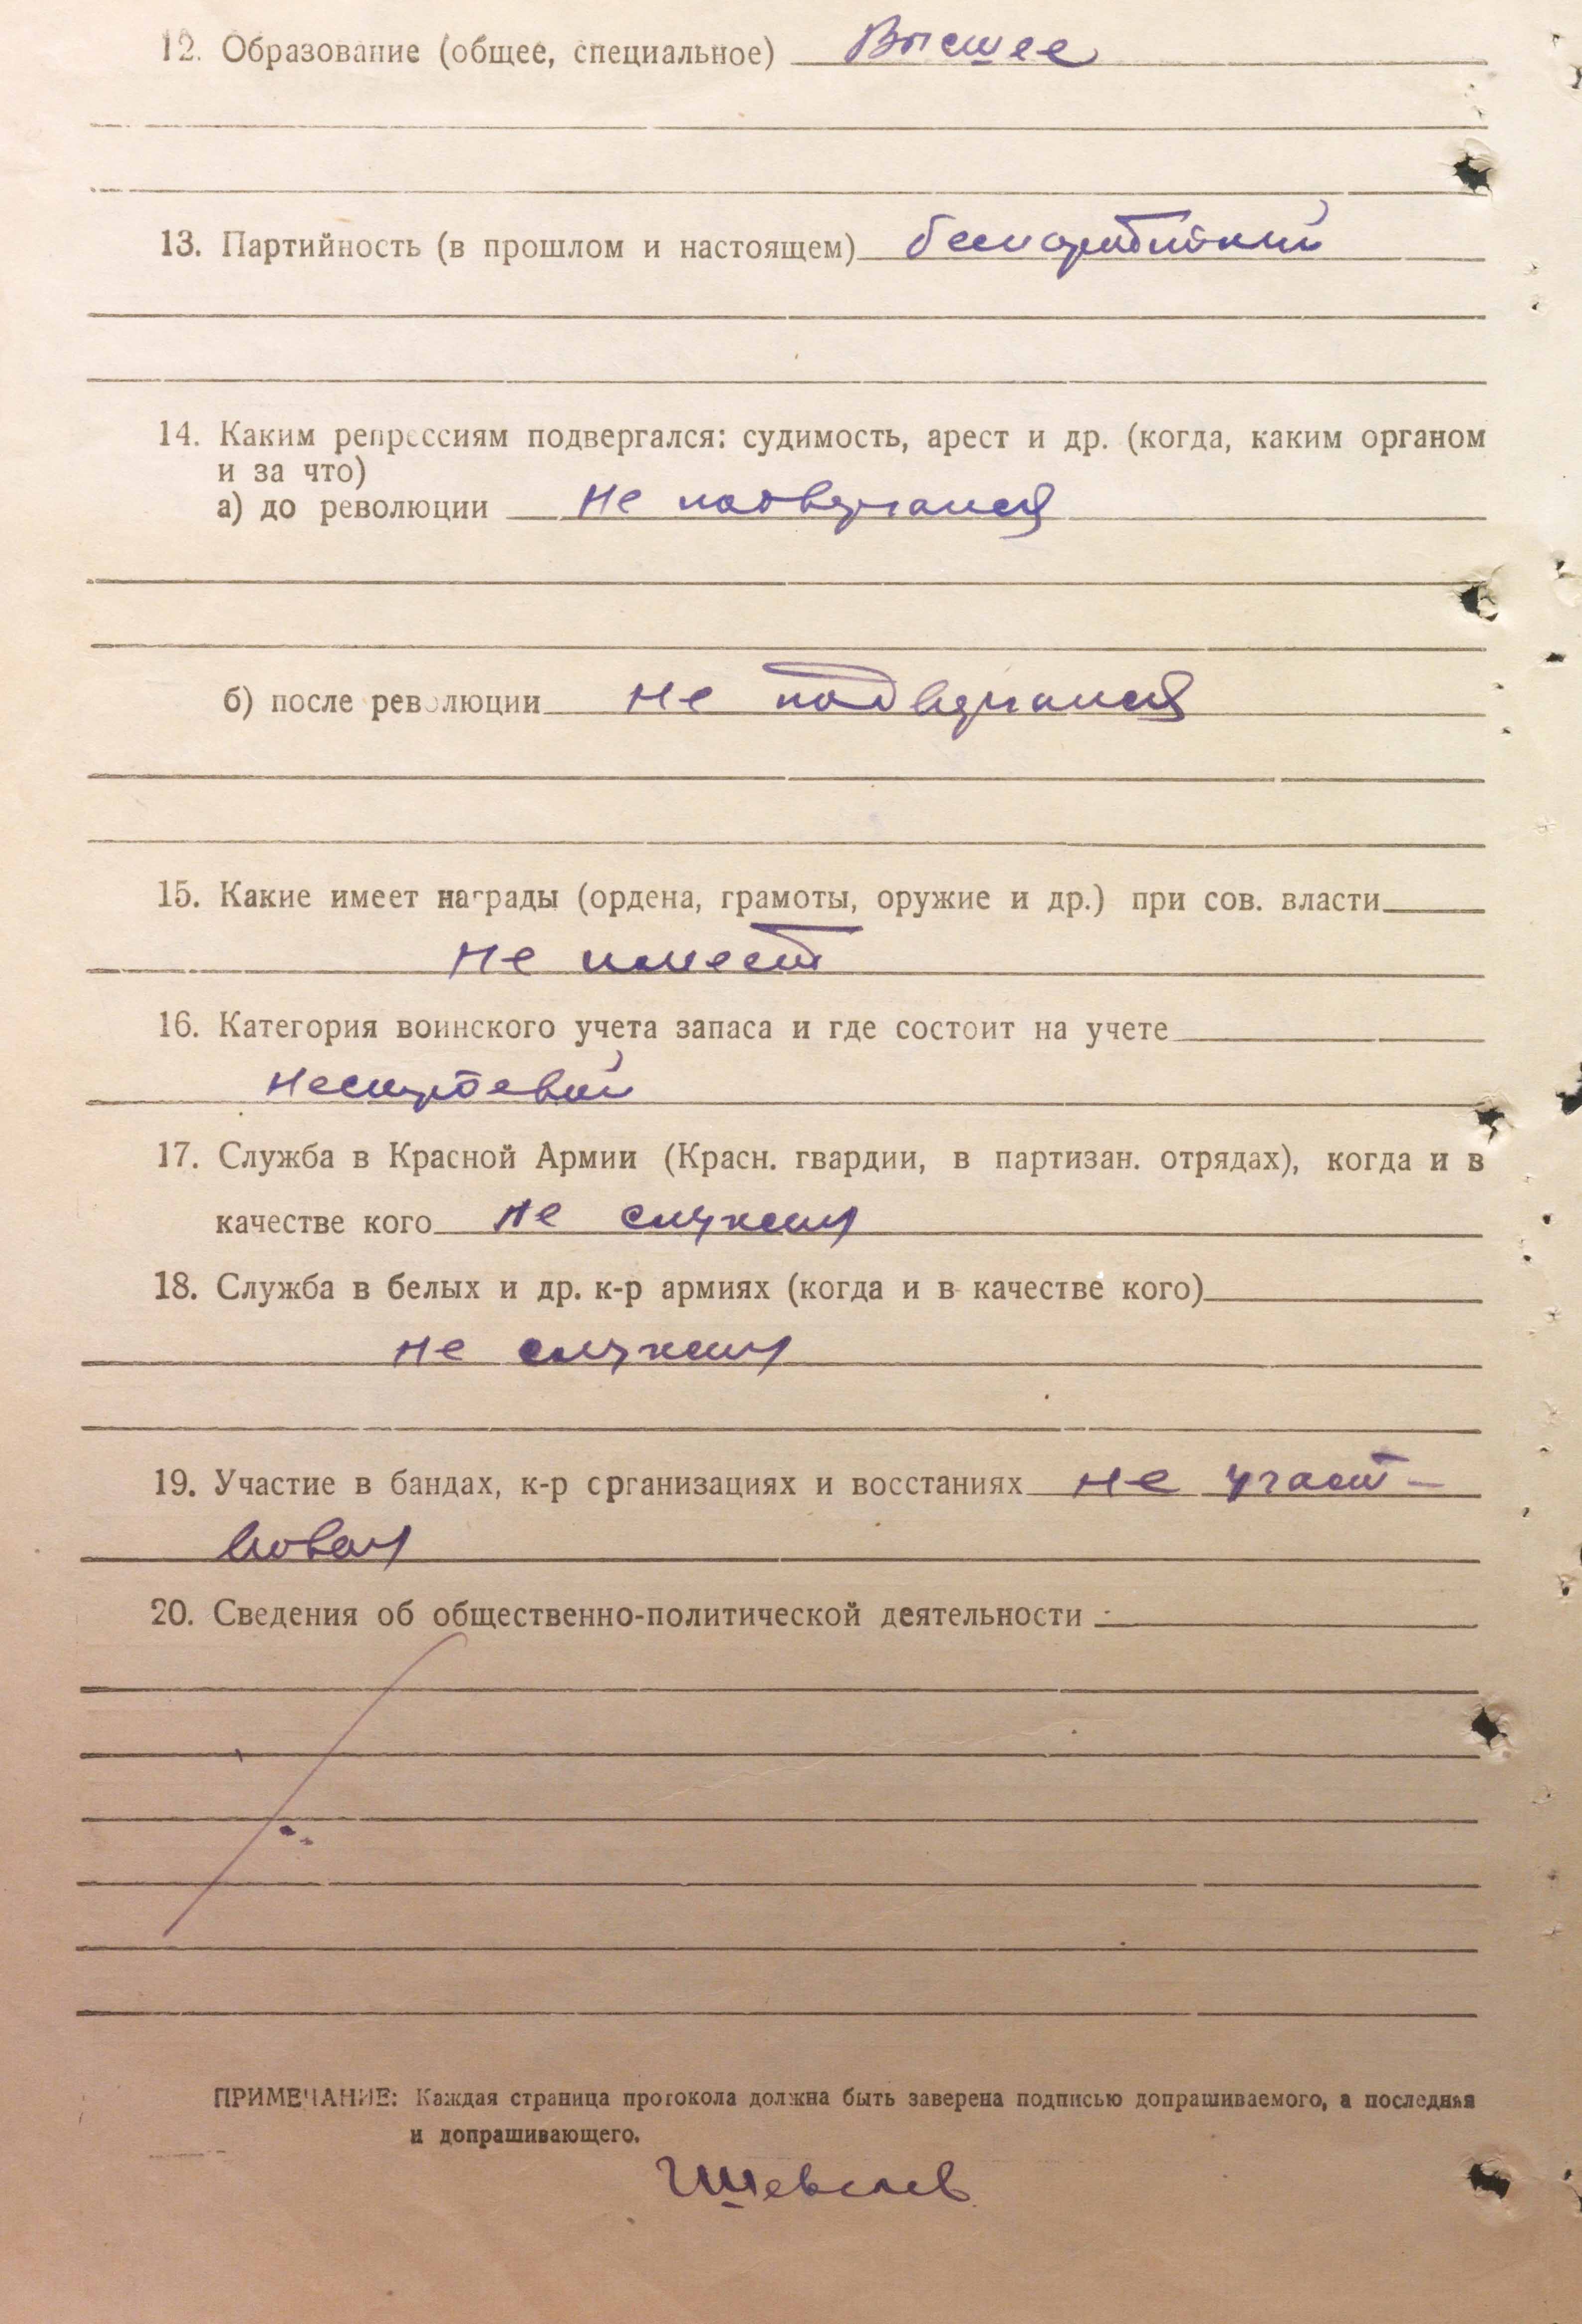 12. Образование (общее, специальное) Высшее
13. Партийность (в прошлом и настоящем) беспартийный
14. Каким репрессиям подвергался: судимость, арест и др. (когда, каким органом
и за что)
а) до революции Не подвергался
б) после революции не подвергался
15. Какие имеет награды (ордена, грамоты, оружие и др.) при сов. власти
не имеет
16. Категория воинского учета запаса и где состоит на учете
нестроевой
17. Служба в Красной Армии (Красн. гвардии, в партизан. отрядах), когда и в
качестве кого не служил
18. Служба в белых и др. к-р армиях (когда и в качестве кого)
не служил
19. Участие в бандах, к-р организациях и восстаниях не участ-
вовал
20. Сведения об общественно-политической деятельности
ПРИМЕЧАНИЕ: Каждая страница протокола должна быть заверена подписью допрашиваемого, а последняя
и допрашивающего.